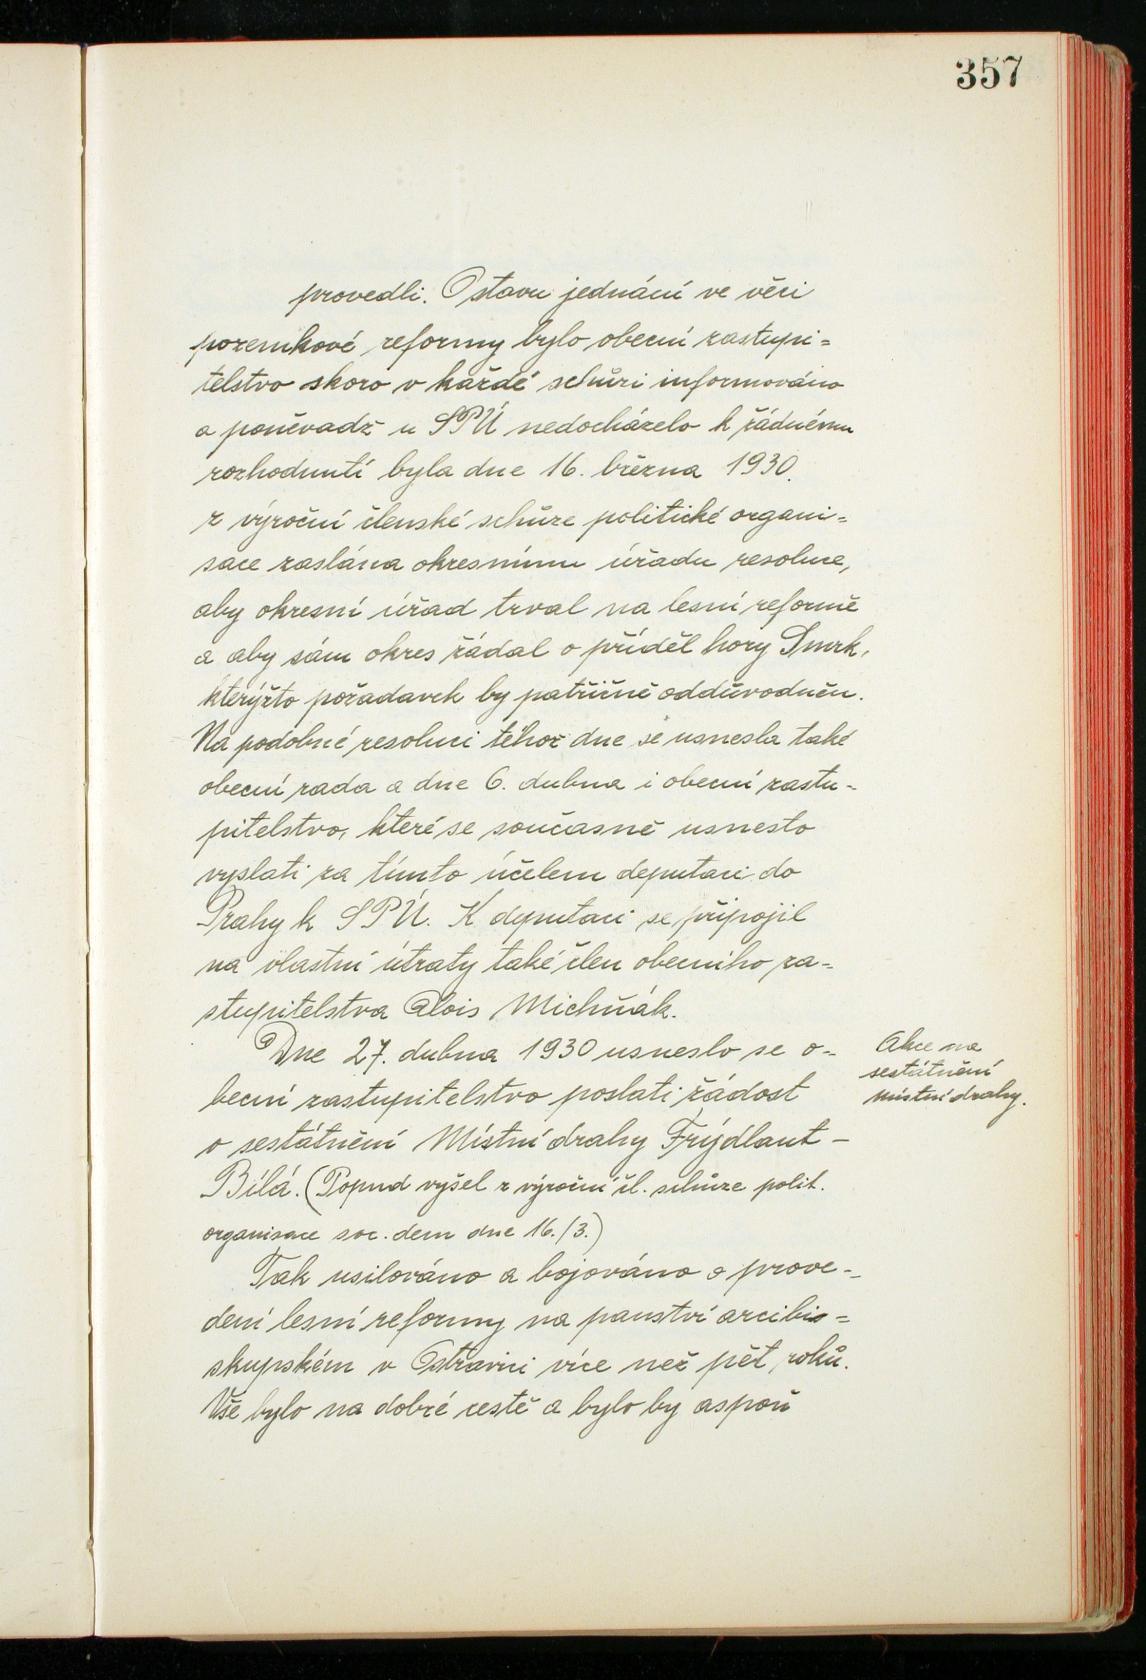 357
provedli. O stavu jednání ve věci
pozemkové reformy bylo obecní zastupi=
telstvo skoro v každé schůzi informováno
a poněvadž u SPÚ nedocházelo k řádnému
rozhodnutí byla dne 16. března 1930.
z výroční členské schůze politické organi=
sace zaslána okresnímu úřadu resoluce,
aby okresní úřad trval na lesní reformě
a aby sám okres žádal o příděl hory Smrk,
kterýžto požadavek by patřičně oddůvodněn.
Na podobné resoluci téhož dne se usnesla také
obecní rada a dne 6. dubna i obecní zastu-
pitelstvo, které se současně usneslo
vyslati za tímto účelem deputaci do
Prahy k SPÚ. K deputaci se připojil
na vlastní útraty také člen obecního za-
stupitelstva Alois Michňák.
Dne 27. dubna 1930 usneslo se o-
becní zastupitelstvo poslati žádost
o sestátnění Místní drahy Frýdlant –
Bílá. (Popud vyšel z výroční čl. schůze polit.
organisace soc. dem dne 16./3.)
Akce na
sestátnění
místní drahy.
Tak usilováno a bojováno o prove-
dení lesní reformy na panství arcibis=
skupském v Ostravici více než pět roků.
Vše bylo na dobré cestě a bylo by aspoň